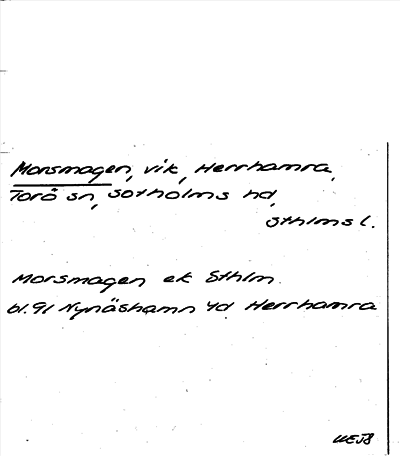 Morsmagen, vik, Herrhamra,
Torö sn, Sotholms hd,
Sthlms l.
Morsmagen ek Sthlm
bl. 91 Nynäshamn 4d Herrhamra